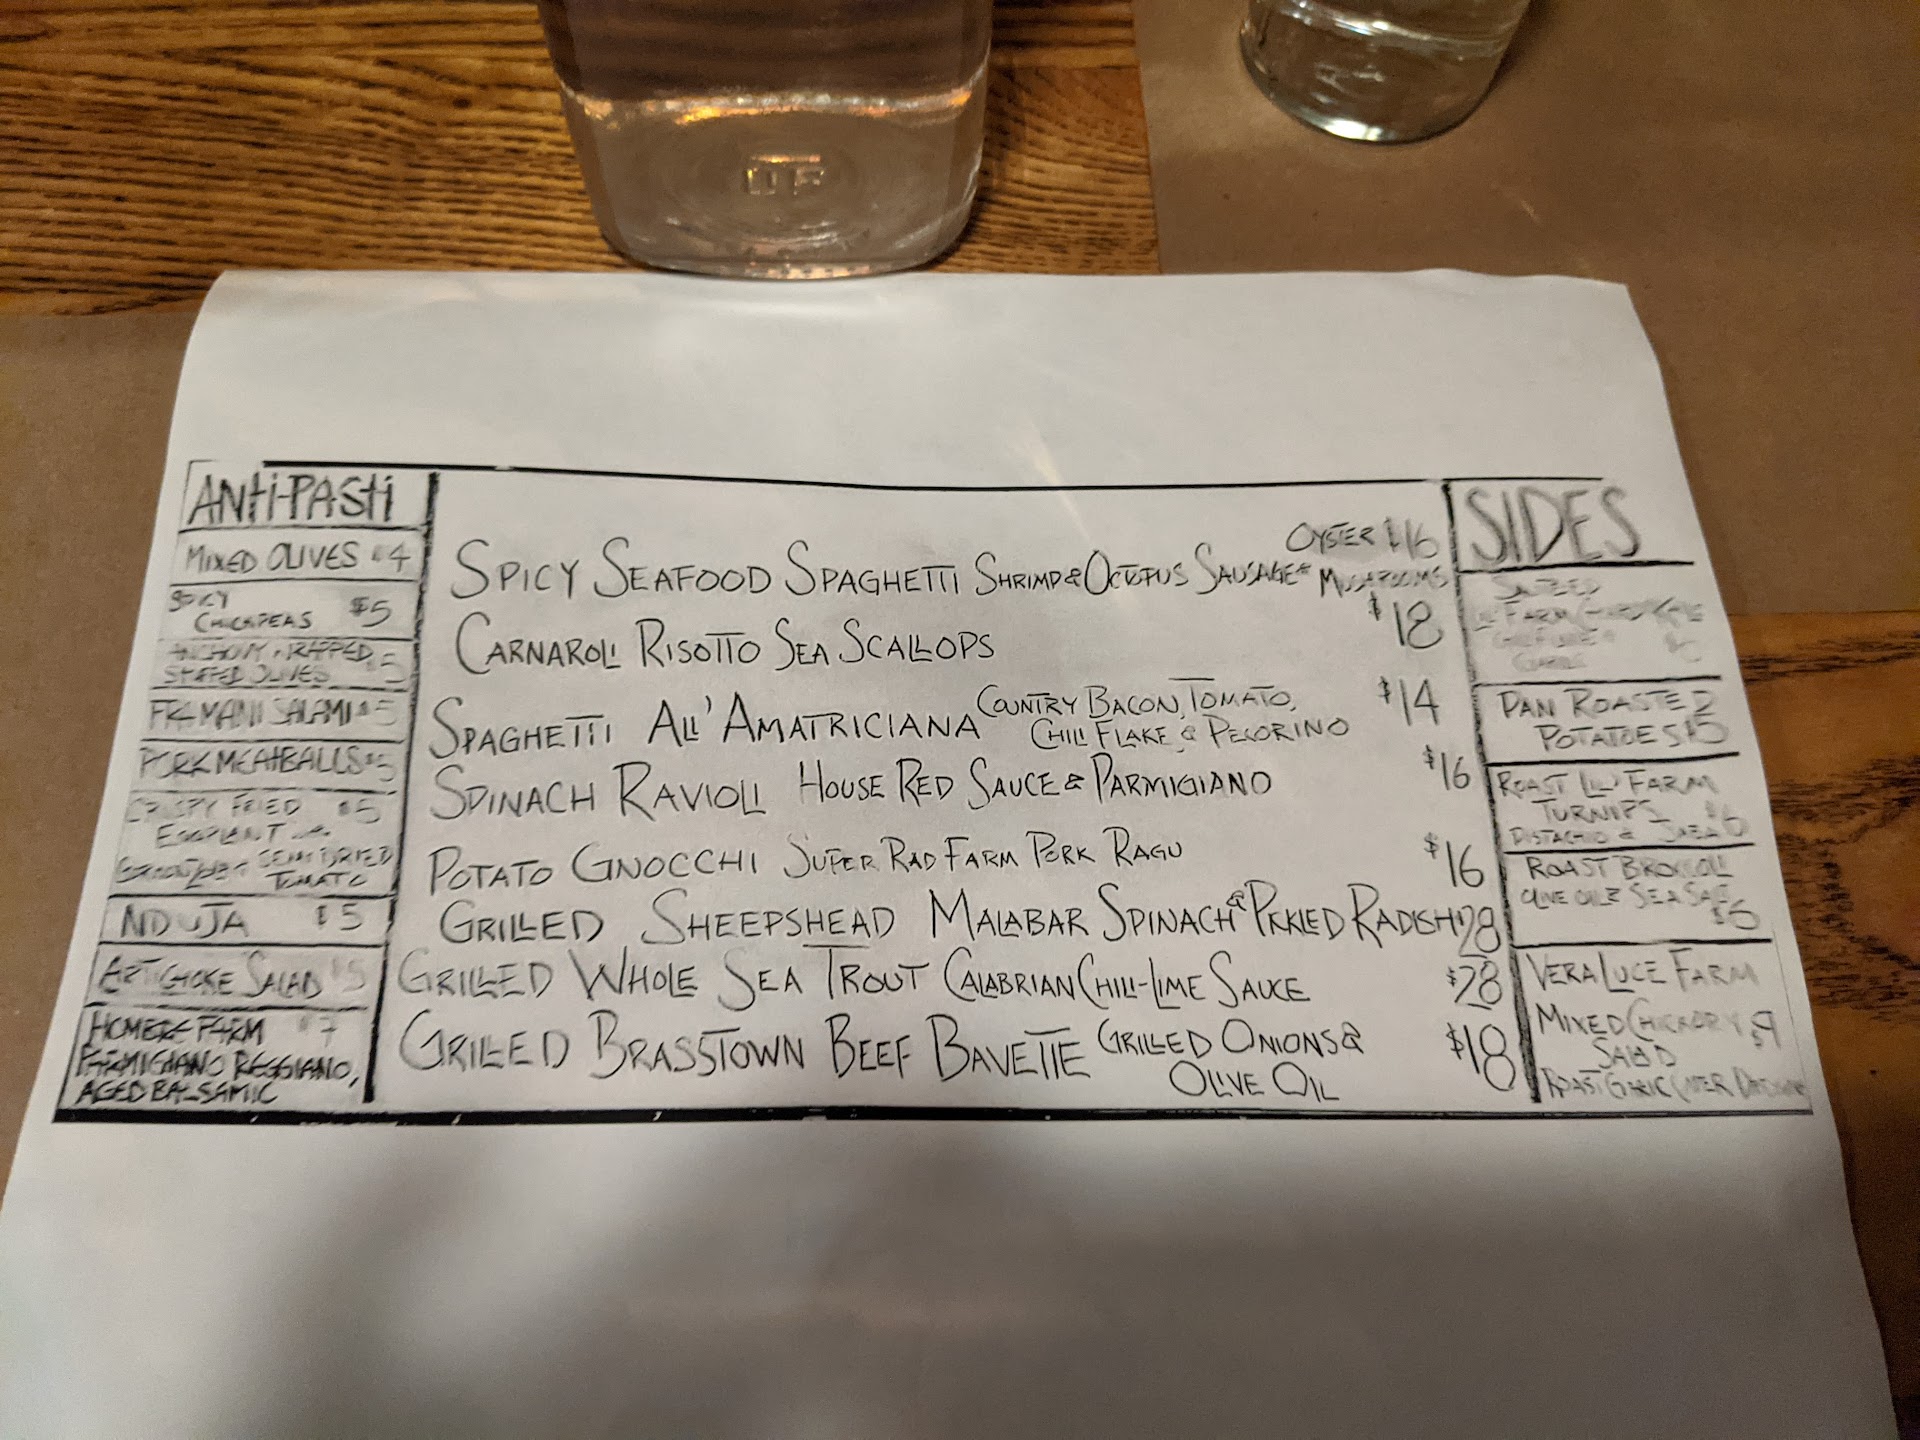 ANTI-PASTI
MIXED OLIVES $4
SPICY
CHICKPEAS $5
ANCHOVY WRAPPED
STUFFED OLIVES $5
FRA'MANI SALAMI $5
PORK MEATBALLS $5
CRISPY FRIED $5
EGGPLANT
SEMI DRIED
TOMATO
NDUJA $5
ARTICHOKE SALAD $5
FARM $7
PARMIGIANO REGGIANO,
AGED BALSAMIC
OYSTER $16
SPICY SEAFOOD SPAGHETTI SHRIMP & OCTOPUS SAUSAGE & MUSHROOMS
$18
CARNAROLI RISOTTO SEA SCALLOPS
SPAGHETTI ALL' AMATRICIANA COUNTRY BACON, TOMATO, $14
CHILI FLAKE, & PECORINO
SPINACH RAVIOLI HOUSE RED SAUCE & PARMIGIANO $16
POTATO GNOCCHI SUPER RAD FARM PORK RAGU $16
GRILLED SHEEPSHEAD MALABAR SPINACH & PICKLED RADISH $28
GRILLED WHOLE SEA TROUT CALABRIAN CHILI-LIME SAUCE $28
GRILLED BRASSTOWN BEEF BAVETTE GRILLED ONIONS & $18
OLIVE OIL
SIDES
FARM
PAN ROASTED
POTATOES $5
ROAST LIL' FARM
TURNIPS $6
PISTACHIO &
ROAST BROCCOLI
OLIVE OIL & SEA SALT
VERA LUCE FARM
MIXED CHICKORY $9
SALAD
ROAST GARLIC